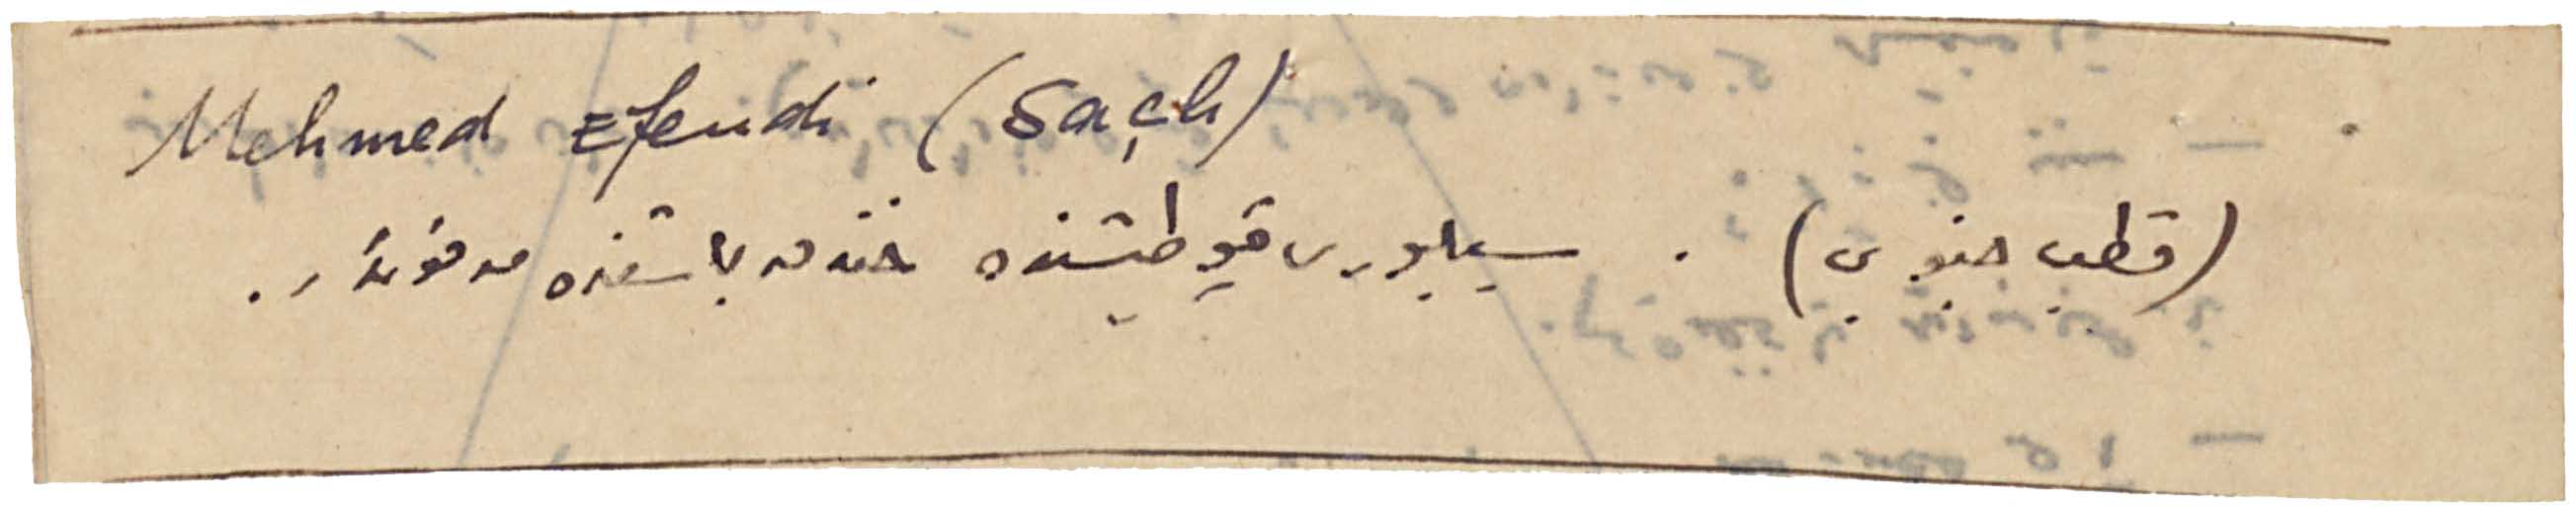 Mehmed Efendi (Saçlı)
(قطب جنوبى) . سيلورى قپوطيشنده خندق باشنده مدفوندر .